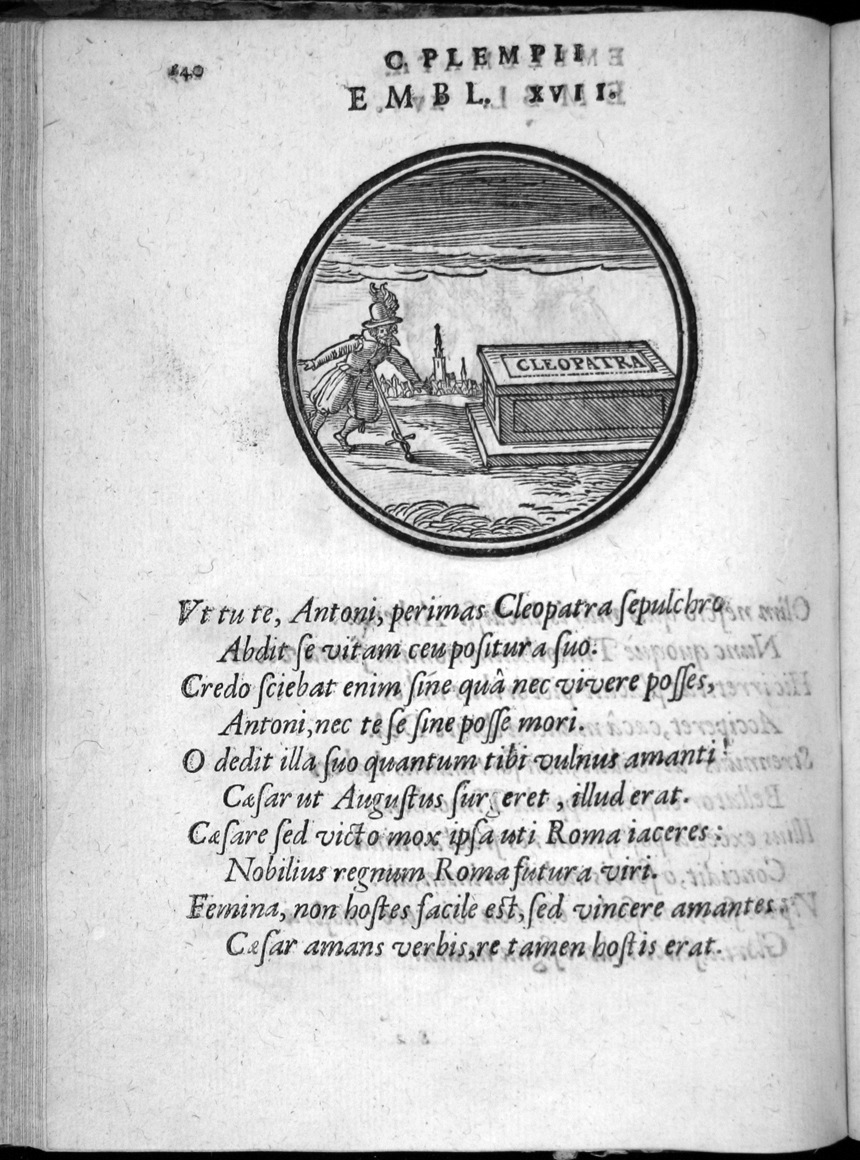 140
C. PLEMPII
EMBL. XVII.
CLEOPATRA
Vt tu te, Antoni, perimas Cleopatra ſepulchro
Abdit ſe vitam ceu poſitura ſuo.
Credo ſciebat enim ſine quâ nec vivere poſſes,
Antoni, nec te ſe ſine poſſe mori.
O dedit illa ſuo quantum tibi vulnus amanti!
Cæſar ut Auguſtus ſurgeret, illud erat.
Cæſare ſed victo mox ipſa uti Roma iaceres:
Nobilius regnum Roma futura viri.
Femina, non hoſtes facile eſt, ſed vincere amantes:
Cæſar amans verbis, re tamen hoſtis erat.